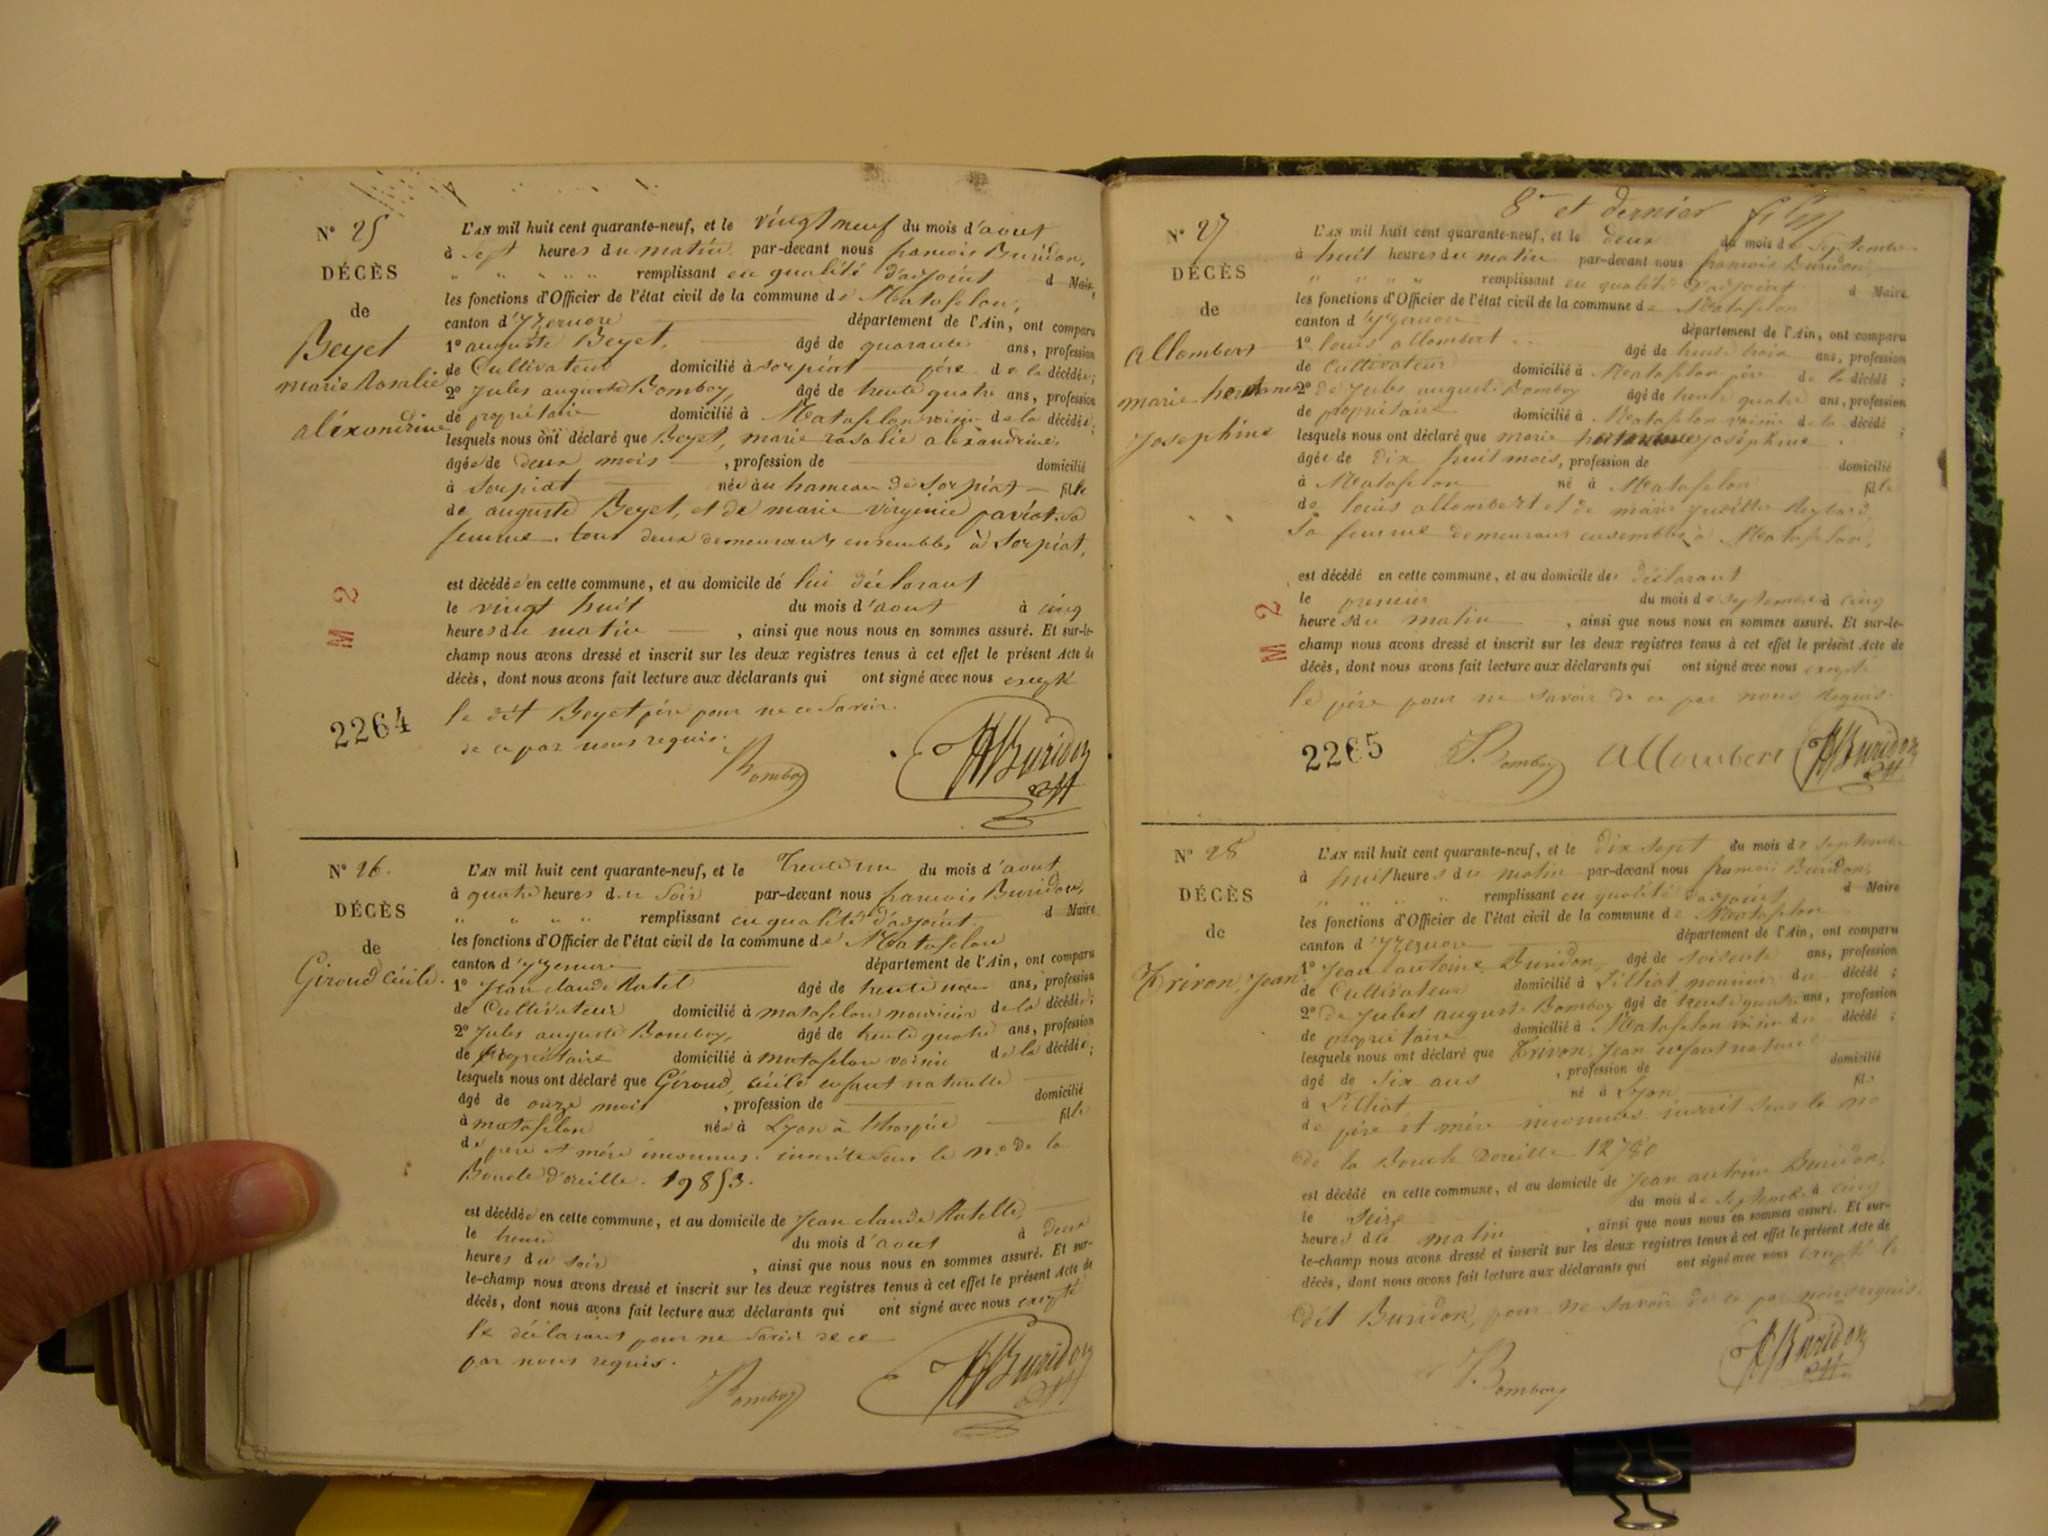 N° 25
DÉCÈS
de
Beyet
marie Rosalie
alixandrine
L'AN mil huit cent quarante-neuf, et le vingt neuf du mois d'aout
à sept heures du matin par-devant nous francois Buridon,
" " " " " remplissant en qualité d'adjoint d Maire,
les fonctions d'Officier de l'état civil de la commune de Matafelon,
canton d'Yzernore département de l'Ain, ont comparu
1° auguste Beyet, âgé de quarante ans, profession
de Cultivateur domicilié à sorpiat père de la décédée;
2° Jules auguste Bomboy, âgé de trente quatre ans, profession
de propriétaire domicilié à Matafelon voisin de la décédée;
lesquels nous ont déclaré que Beyet, marie rosalie alexandrine,
âgée de deux mois, profession de domicilié
à Sorpiat née au hameau de Sorpiat fille
de auguste Beyet, et de marie virginie paviot sa
femme tous deux demeurants ensembles à Sorpiat,
est décédée en cette commune, et au domicile de lui déclarant
le vingt huit du mois d'aout à cinq
heures du matin, ainsi que nous nous en sommes assuré. Et sur-le-
champ nous avons dressé et inscrit sur les deux registres tenus à cet effet le présent Acte de
décès, dont nous avons fait lecture aux déclarants qui ont signé avec nous excepté
le dit Beyet père pour ne savoir
de ce par nous requis.
Bomboy
Buridon
M 2
2264
N° 26.
DÉCÈS
de
Giroud Cécile.
L'AN mil huit cent quarante-neuf, et le trente un du mois d'aout
à quatre heures du soir par-devant nous francois Buridon,
" " " " remplissant en qualité d'adjoint d Maire
les fonctions d'Officier de l'état civil de la commune de Matafelon
canton d'Yzernore département de l'Ain, ont comparu
1° Jean claude Ratel âgé de trente ans, profession
de Cultivateur domicilié à matafelon nouricier de la décédée;
2° Jules auguste Bomboy, âgé de trente quatre ans, profession
de propriétaire domicilié à matafelon voisin de la décédée;
lesquels nous ont déclaré que Giroud, cécile enfant naturelle
âgé de onze mois, profession de domicilié
à matafelon née à Lyon à l'hospice fille
de père et mère inconnus inscrite sous le n° de la
Boucle d'oreille. 19853.
est décédée en cette commune, et au domicile de Jean claude Ratelle,
le trente du mois d'aout à deux
heures du soir, ainsi que nous nous en sommes assuré. Et sur-
le-champ nous avons dressé et inscrit sur les deux registres tenus à cet effet le présent Acte de
décès, dont nous avons fait lecture aux déclarants qui ont signé avec nous excepté
le déclarant pour ne savoir de ce
par nous requis.
Bomboy
Buridon
8me et dernier
N° 27
DÉCÈS
de
allombert
marie
Josephine
L'AN mil huit cent quarante-neuf, et le deux du mois de Septembre
à huit heures du matin par-devant nous francois Buridon,
" " " " remplissant en qualité d'adjoint d Maire
les fonctions d'Officier de l'état civil de la commune de Matafelon
canton d'Yzernore département de l'Ain, ont comparu
1° louis allombert âgé de trente trois ans, profession
de Cultivateur domicilié à Matafelon père de la décédé;
2° de Jules auguste Bomboy âgé de trente quatre ans, profession
de propriétaire domicilié à Matafelon voisin de la décédé;
lesquels nous ont déclaré que marie josephine
âgée de dix huit mois, profession de domicilié
à Matafelon né à Matafelon fille
de louis allombert et de marie
sa femme demeurans ensembles à Matafelon,
est décédé en cette commune, et au domicile de déclarant
le premier du mois de septembre à cinq
heures du matin, ainsi que nous nous en sommes assuré. Et sur-le-
champ nous avons dressé et inscrit sur les deux registres tenus à cet effet le présent Acte de
décès, dont nous avons fait lecture aux déclarants qui ont signé avec nous excepté
le père pour ne savoir de ce par nous requis.
Bomboy allombert Buridon
M 2
2265
N° 28
DÉCÈS
de
Trivon, Jean
L'AN mil huit cent quarante-neuf, et le dix sept du mois de septembre
à huit heures du matin par-devant nous francois Buridon,
" " " " remplissant en qualité d'adjoint d Maire
les fonctions d'Officier de l'état civil de la commune de Matafelon
canton d'Yzernore département de l'Ain, ont comparu
1° Jean antoine Buridon, âgé de soisente ans, profession
de Cultivateur domicilié à Lilliat nouricier du décédé;
2° de Jules auguste Bomboy âgé de trente quatre ans, profession
de propriétaire domicilié à Matafelon voisin du décédé;
lesquels nous ont déclaré que Trivon, Jean enfant naturel
âgé de six ans, profession de domicilié
à Lilliat né à Lyon fils
de père et mère inconnus inscrit sous le no
de la Boucle doreille 12780
est décédé en cette commune, et au domicile de Jean antoine Buridon,
le seize du mois de Septembre à cinq
heures du matin, ainsi que nous nous en sommes assuré. Et sur-
le-champ nous avons dressé et inscrit sur les deux registres tenus à cet effet le présent Acte de
décès, dont nous avons fait lecture aux déclarants qui ont signé avec nous excepté le
dit Buridon, pour ne savoir de ce par nous requis.
Bomboy
Buridon